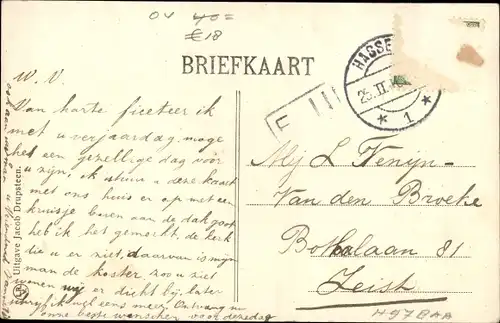 04 40=
€18
BRIEFKAART
HASSE
25.II
* 1 *
F
W. V.
Van harte ficeteer ik
met u verjaardag moge
het een gezellige dag voor
u zijn, ik stuur u deze kaart
met ons huis er op met een
kruisje boven aan de dak goot
heb ik het gemerkt, de kerk
die u er ziet, daarvan is mijn
man de koster, zoo u ziet
wonen wij er dicht bij later
schryf ik wel eens meer. Ontvang u
onze beste wenschen voor deze dag
Uitgave Jacob Drupsteen.
Mej L Venyn-
Van den Broeke
Bothalaan 81
Zeist
H978AA